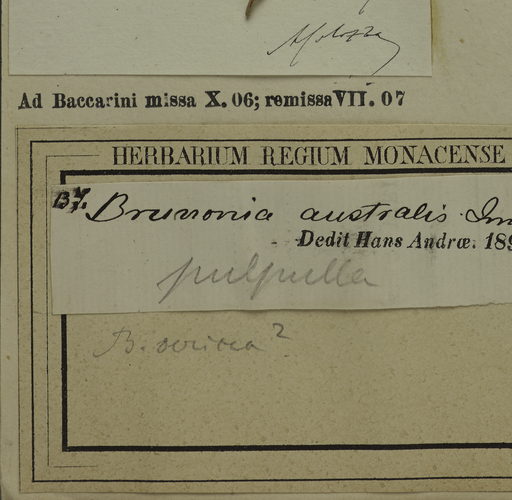 Ad Baccarini missa X. 06; remissa VII. 07
HERBARIUM REGIUM MONACENSE
Brunonia australis Sm
Dedit Hans Andræ. 189
B. sericea?